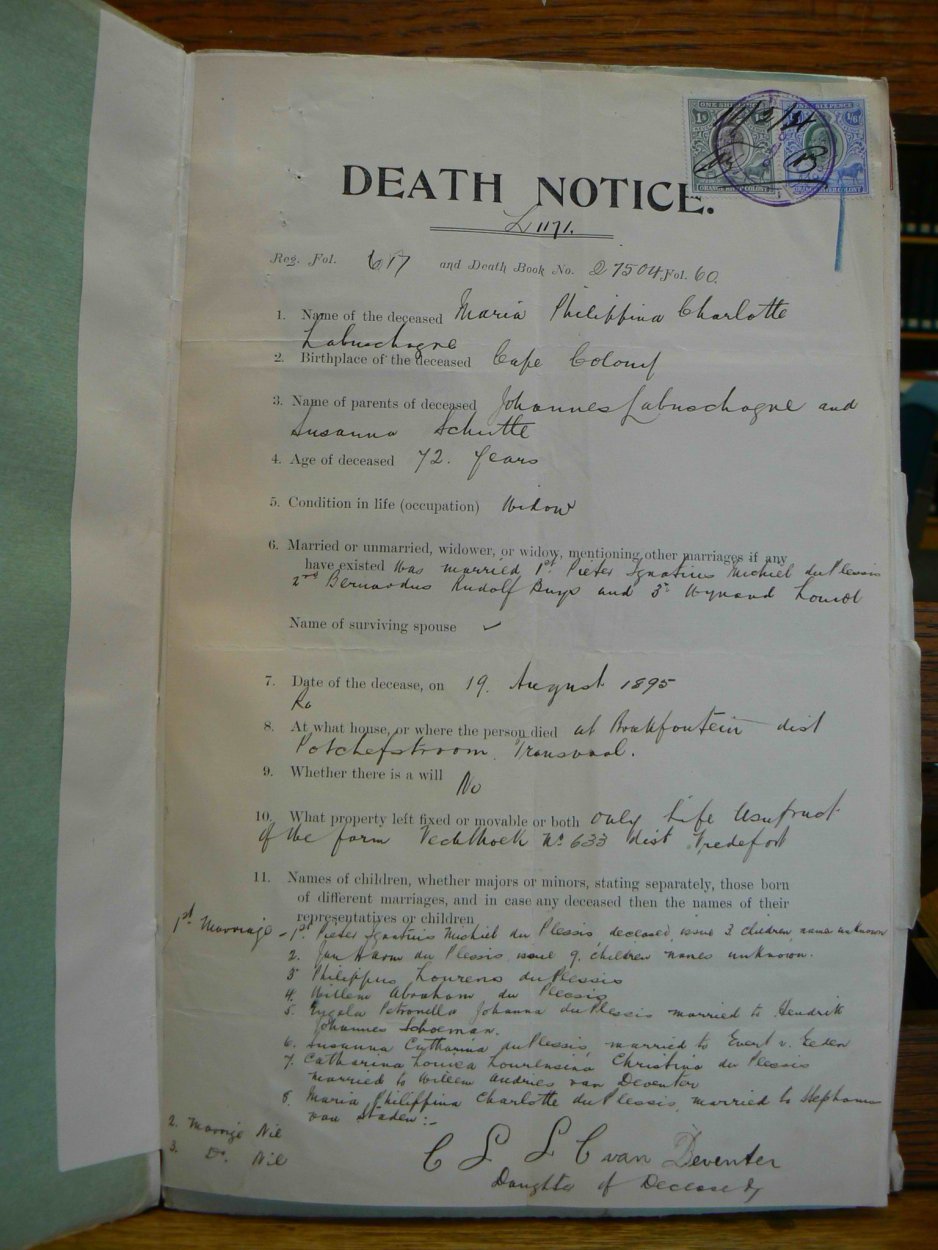 ONE SHILLING
1s
ONE & SIX PENCE
1/6
ORANGE RIVER COLONY
DEATH NOTICE.
L 1171.
Reg. Fol. 617 and Death Book No. 27504 Fol. 60.
1. Name of the deceased Maria Philippina Charlotte
Labuschagne
2. Birthplace of the deceased Cape Colony
3. Name of parents of deceased Johannes Labuschagne and
Susanna Schutte
4. Age of deceased 72. Years
5. Condition in life (occupation) Widow
6. Married or unmarried, widower, or widow, mentioning other marriages if any
have existed Was married 1st. Pieter Ignatius Michiel du Plessis
2nd Bernardus Rudolf Buys and 3d Wynand Louw
Name of surviving spouse
7. Date of the decease, on 19. August 1895
8. At what house, or where the person died at Braakfontein dist
Potchefstroom, Transvaal.
9. Whether there is a will No
10. What property left fixed or movable or both only Life Usufruct
of the farm Vechthoek No. 633 dist Vredefort
11. Names of children, whether majors or minors, stating separately, those born
of different marriages, and in case any deceased then the names of their
representatives or children
1st. Marriage - 1st. Pieter Ignatius Michiel du Plessis, deceased, issue 3 children, names unknown
2. Jan Harm du Plessis, issue 9. children names unknown.
3 Philippus Lourens du Plessis
4. Willem Abraham du Plessis
5. Engela Petronella Johanna du Plessis married to Hendrik
Johannes Schoeman.
6. Susanna Catharina du Plessis, married to Evert v. Eeden
7. Catharina Louisa Lourensina Christina du Plessis
married to Willem Andries van Deventer
8. Maria Philippina Charlotte du Plessis, married to Stephanus
van Staden:-
2. Marriage Nil
3. Do. Nil
C L L C van Deventer
Daughter of Deceased